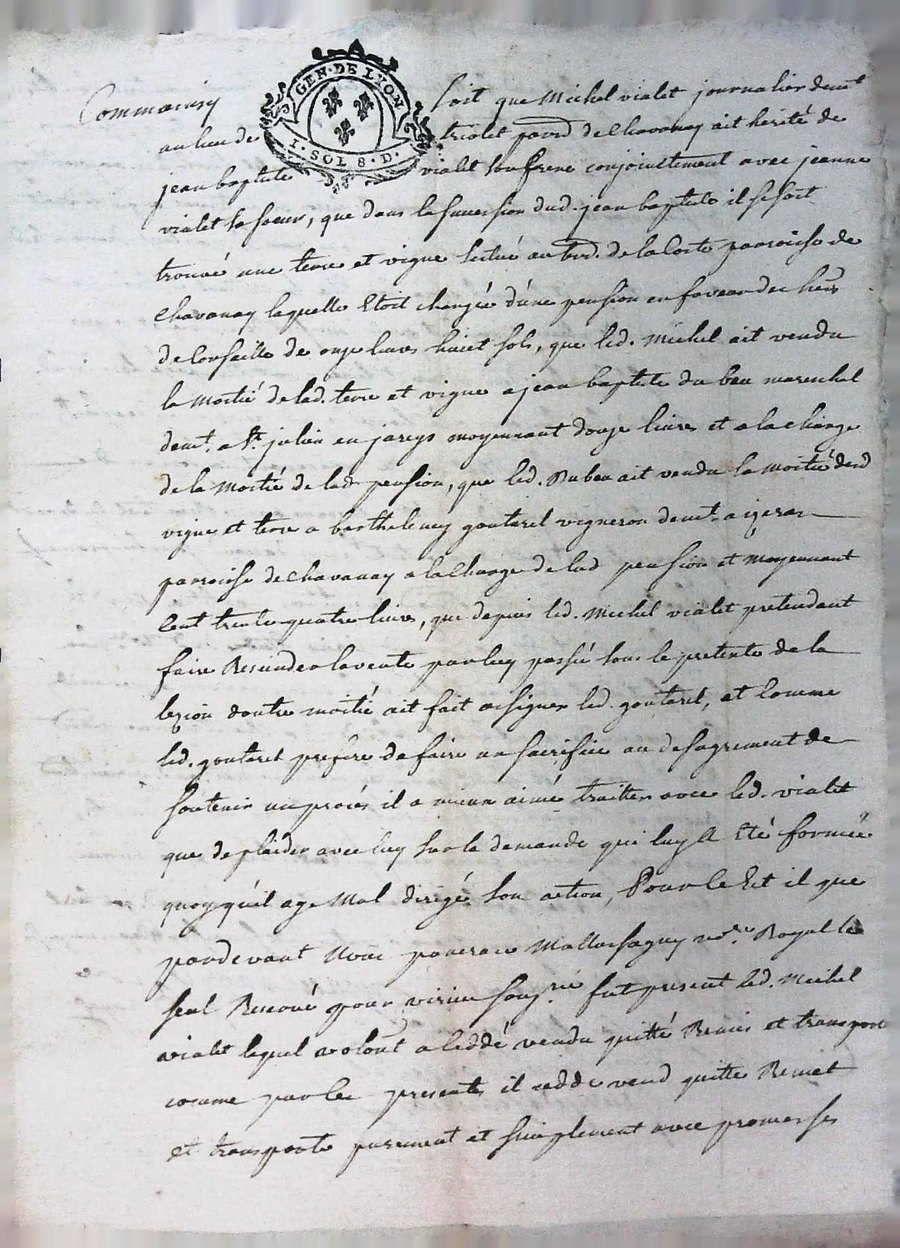 GEN · DE LYON
1 · SOL 8 · D ·
Comme ainsy soit que Michel vialet journalier demt
au lieu de triolet parrd de Chavanay ait herité de
jean baptiste vialet son frere conjoinctement avec jeanne
vialet sa soeur, que dans la succession dud. jean baptiste il se soit
trouvé une terre et vigne scitué au de la Coste parroisse de
Chavanay laquelle Etoit chargée d'une pension en faveur des
de Corseille de onze livres huict sols, que led. Michel ait vendu
la moitié de lad. terre et vigne a jean baptiste du bau marechal
demt. a St. julien en jareys moyennant douze livres et a la charge
de la moitié de lad pension, que led. Dubau ait vendu la moitié desd
vigne et terre a barthelemy goutarel vigneron demt. a
parroisse de Chavanay a la Charge de lad pension et moyennant
Cent trente quatre livres, que depuis led. Michel vialet pretendant
faire Rescinder la vente par luy passée sous le pretexte de la
lezion doutre moitié ait fait assigner led. goutarel, et comme
led. goutarel prefere de faire un sacrifice au desagrement de
soutenir un procés il a mieux aimé traitter avec led. vialet
que de plaider avec luy sur la demande qui luy a Eté formée
quoy qu'il aye Mal dirigé son action, Pour Ce Est il que
pardevant Nous no.re Royal le
seul Reservé pour virieu soug.né fut present led. Michel
vialet lequel a ceddé vendu quitté Remis et transporté
comme par les presentes il cedde vend quitte Remet
et transporte purement et simplement avec promesses